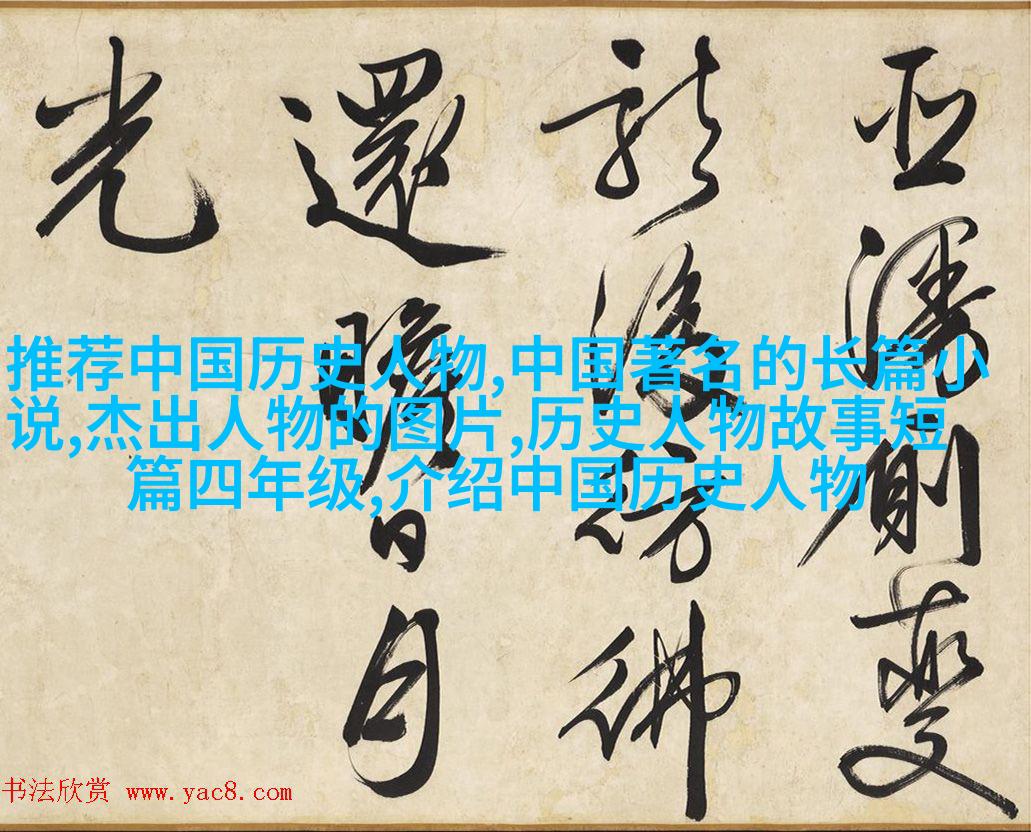 側夔
龍後彷彿
還瞻日月
光
推荐中国历史人物,中国著名的长篇小
说,杰出人物的图片,历史人物故事短
篇四年级,介绍中国历史人物
书法欣赏 www.yac8.com